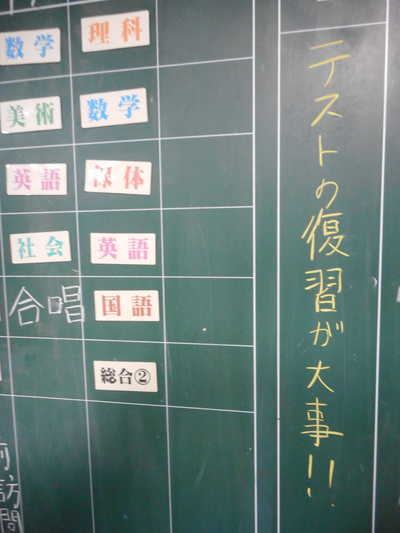 テストの復習が大事!!
理科
数学
保体
英語
国語
総合②
数学
美術
英語
社会
合唱
訪問